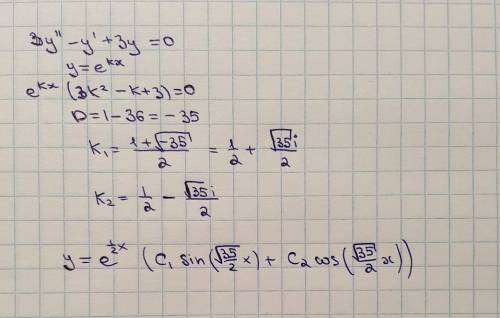 3y'' - y' + 3y = 0
y = e^{kx}
e^{kx} (3k² - k + 3) = 0
D = 1 - 36 = - 35
K₁ = \frac{1 + \sqrt{-35}}{2} = \frac{1}{2} + \frac{\sqrt{35}i}{2}
K₂ = \frac{1}{2} - \frac{\sqrt{35}i}{2}
y = e^{\frac{1}{2}x} (C₁ sin(\frac{\sqrt{35}}{2}x) + C₂ cos(\frac{\sqrt{35}}{2}x))